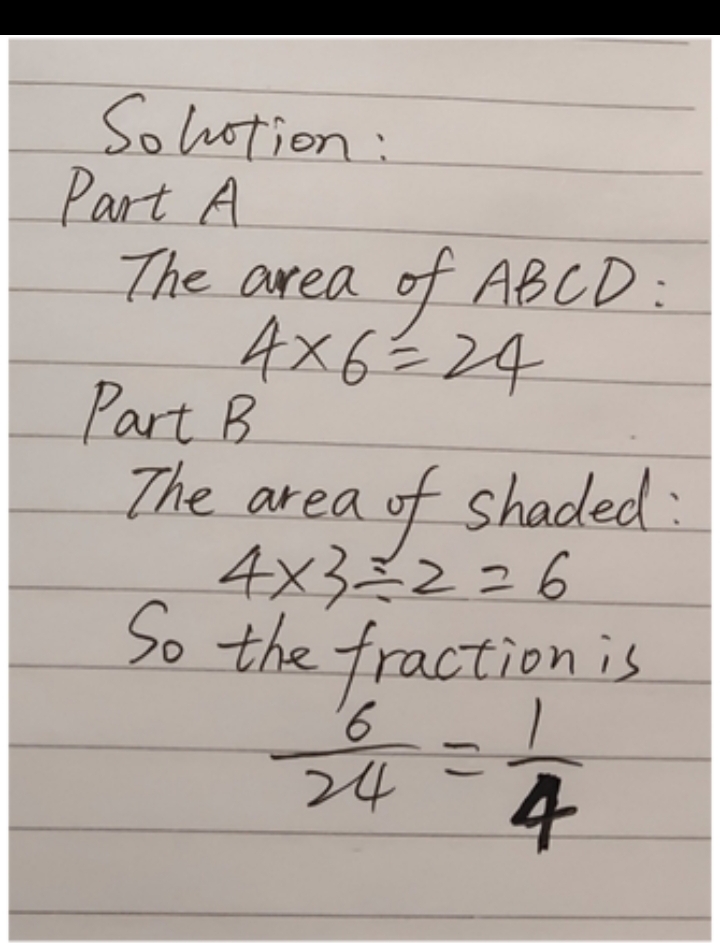 Solution:
Part A
The area of ABCD:
4×6=24
Part B
The area of shaded:
4×3÷2=6
So the fraction is
6/24 = 1/4